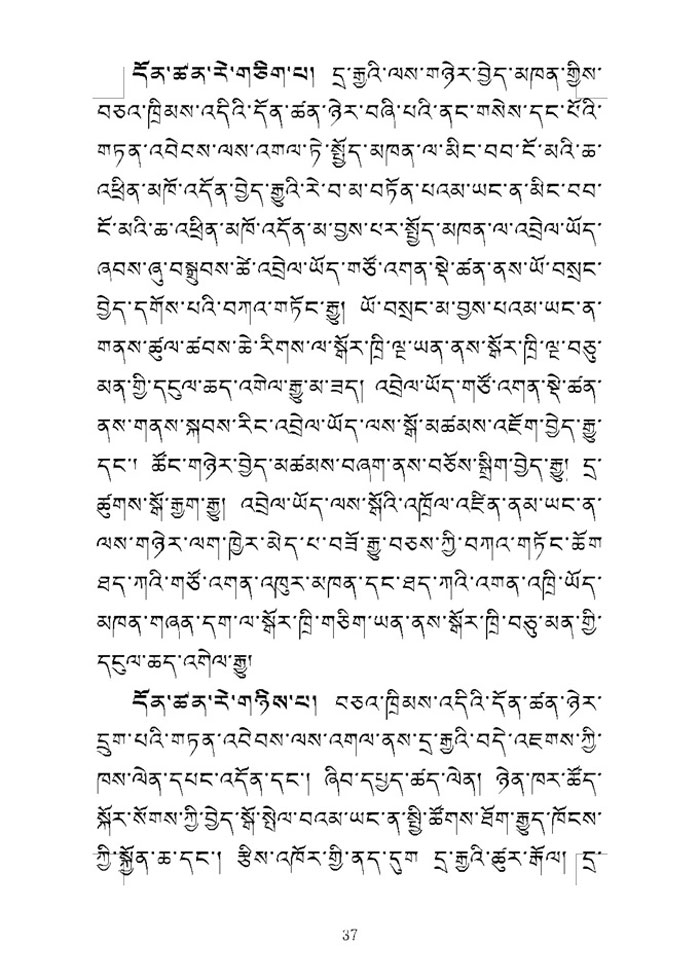 དོན་ཚན་རེ་གཅིག་པ། དྲ་རྒྱའི་ལས་གཉེར་བྱེད་མཁན་གྱིས་
བཅའ་ཁྲིམས་འདིའི་དོན་ཚན་ཉེར་བཞི་པའི་ནང་གསེས་དང་པོའི་
གཏན་འབེབས་ལས་འགལ་ཏེ་སྤྱོད་མཁན་ལ་མིང་བབ་ངོ་མའི་ཆ་
འཕྲིན་མཁོ་འདོན་བྱེད་རྒྱུའི་རེ་བ་མ་བཏོན་པའམ་ཡང་ན་མིང་བབ་
ངོ་མའི་ཆ་འཕྲིན་མཁོ་འདོན་མ་བྱས་པར་སྤྱོད་མཁན་ལ་འབྲེལ་ཡོད་
ཞབས་ཞུ་བསྒྲུབས་ཚེ་འབྲེལ་ཡོད་གཙོ་འགན་སྡེ་ཚན་ནས་ཡོ་བསྲང་
བྱེད་དགོས་པའི་བཀའ་གཏོང་རྒྱུ། ཡོ་བསྲང་མ་བྱས་པའམ་ཡང་ན་
གནས་ཚུལ་ཚབས་ཆེ་རིགས་ལ་སྒོར་ཁྲི་ལྔ་ཡན་ནས་སྒོར་ཁྲི་ལྔ་བཅུ་
མན་གྱི་དངུལ་ཆད་འགེལ་རྒྱུ་མ་ཟད། འབྲེལ་ཡོད་གཙོ་འགན་སྡེ་ཚན་
ནས་གནས་སྐབས་རིང་འབྲེལ་ཡོད་ལས་སྒོ་མཚམས་འཇོག་བྱེད་རྒྱུ་
དང་། ཚོང་གཉེར་བྱེད་མཚམས་བཞག་ནས་བཅོས་སྒྲིག་བྱེད་རྒྱུ། དྲ་
ཚིགས་སྒོ་རྒྱག་རྒྱུ། འབྲེལ་ཡོད་ལས་སྒོའི་འཁྲོལ་འཛིན་ནམ་ཡང་ན་
ལས་གཉེར་ལག་ཁྱེར་མེད་པ་བཟོ་རྒྱུ་བཅས་ཀྱི་བཀའ་གཏོང་ཆོག
ཐད་ཀའི་གཙོ་འགན་འཁུར་མཁན་དང་ཐད་ཀའི་འགན་འཁྲི་ཡོད་
མཁན་གཞན་དག་ལ་སྒོར་ཁྲི་གཅིག་ཡན་ནས་སྒོར་ཁྲི་བཅུ་མན་གྱི་
དངུལ་ཆད་འགེལ་རྒྱུ།
དོན་ཚན་རེ་གཉིས་པ། བཅའ་ཁྲིམས་འདིའི་དོན་ཚན་ཉེར་
དྲུག་པའི་གཏན་འབེབས་ལས་འགལ་ནས་དྲ་རྒྱའི་བདེ་འཇགས་ཀྱི་
ཁས་ལེན་དཔང་འདོན་དང་། ཞིབ་དཔྱད་ཚད་ལེན། ཉེན་ཁར་ཚོད་
སྐོར་སོགས་ཀྱི་བྱེད་སྒོ་སྤེལ་བའམ་ཡང་ན་སྤྱི་ཚོགས་ཐོག་རྒྱུད་ཁོངས་
ཀྱི་སྐྱོན་ཆ་དང་། རྩིས་འཁོར་གྱི་ནད་དུག དྲ་རྒྱའི་ཚུར་རྒོལ། དྲ་
37